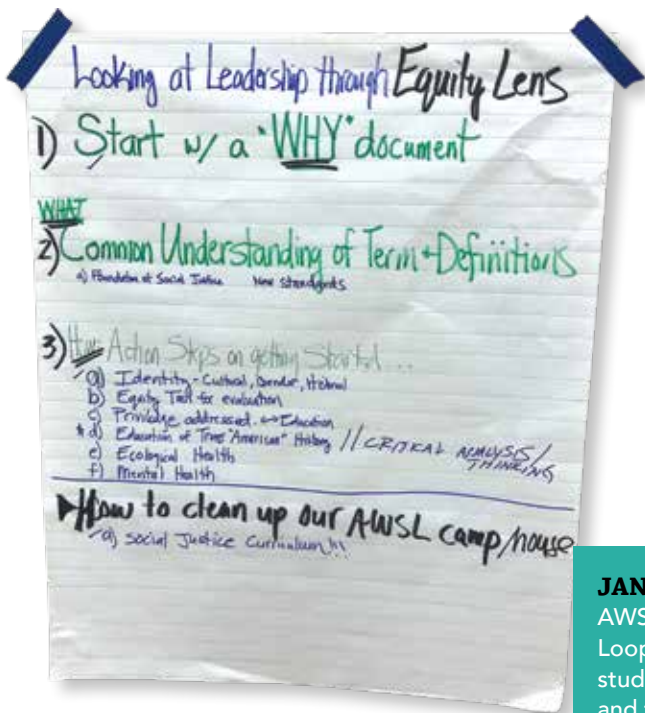 Looking at Leadership through Equity Lens
1) Start w/ a "WHY" document
WHAT
2) Common Understanding of Term + Definitions
a) Foundation of Social Justice New standards
3) How Action Steps on getting Started...
a) Identity - Cultural, Gender,
b) Equity Tool for evaluation
c) Privilege addressed. ↔ Education
* d) Education of True "American" History // CRITICAL ANALYSIS/
THINKING
e) Ecological Health
f) Mental Health
▶How to clean up our AWSL camp/house
a) Social Justice Curriculum!!!
JAN
AWS
Loop
stud
and